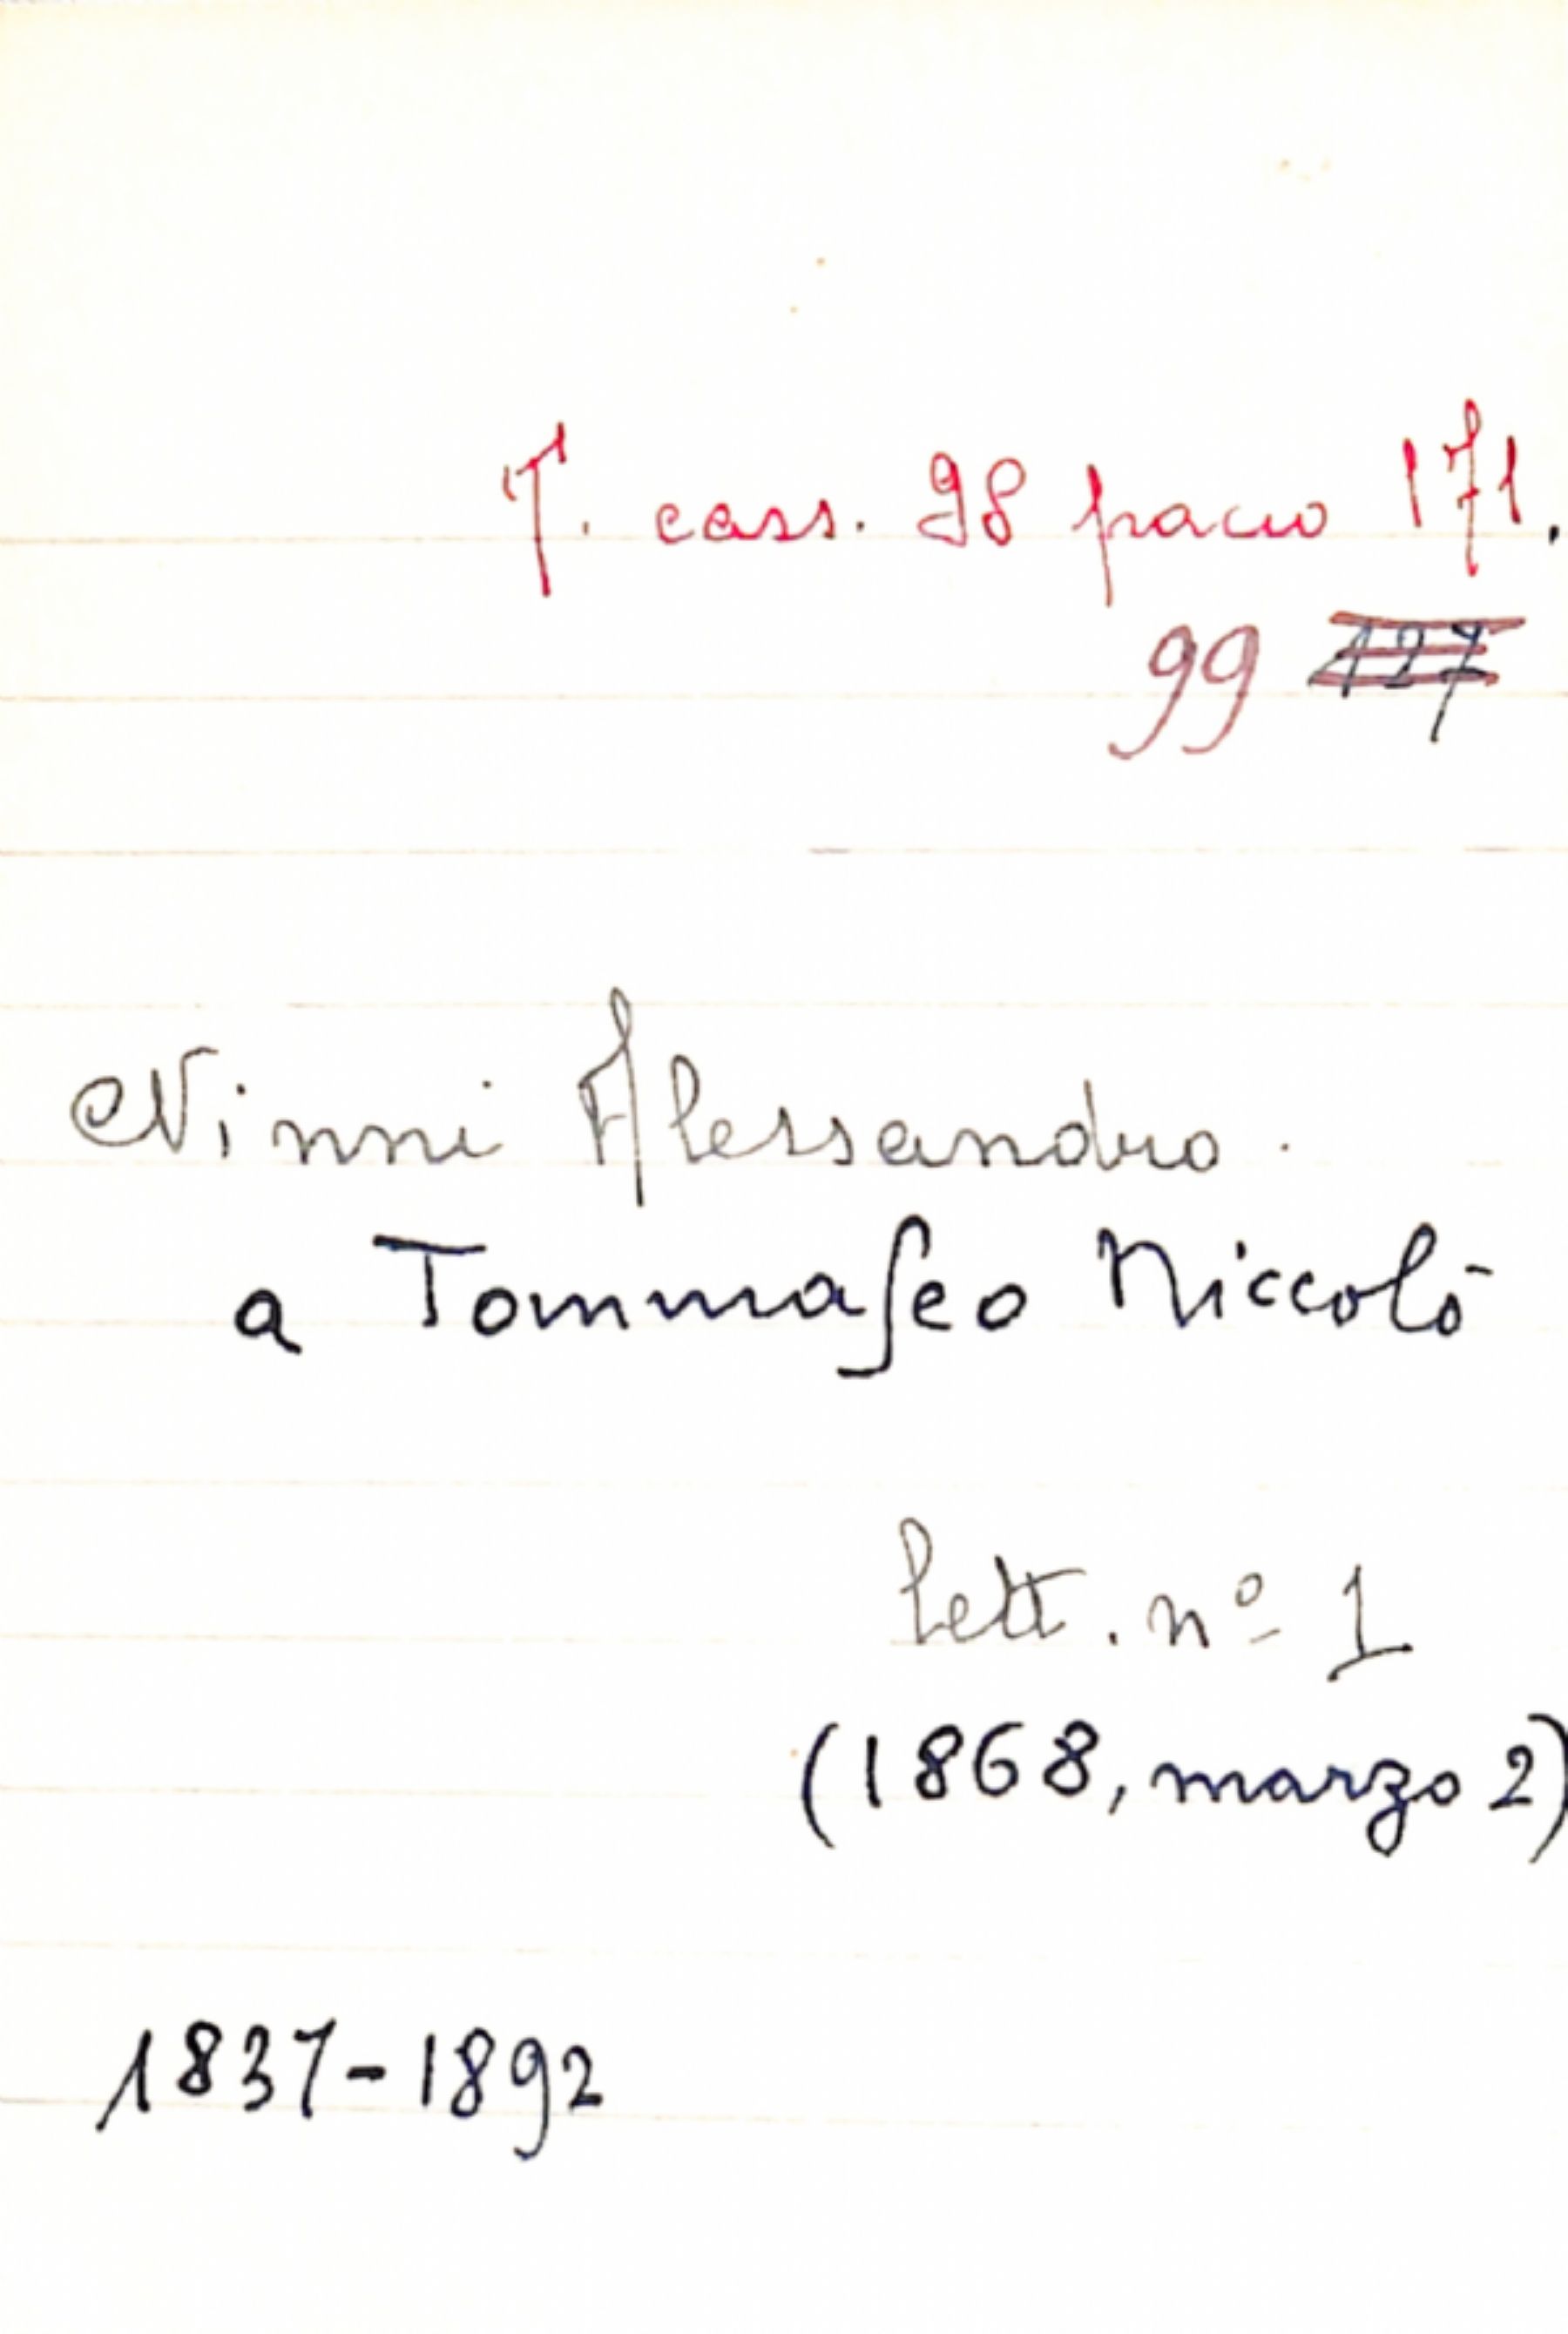 T. cass. 98 pacco 171.
99 127
Ninni Alessandro.
a Tommaseo Niccolò
Lett. nº 1
(1868, marzo 2)
1837-1892